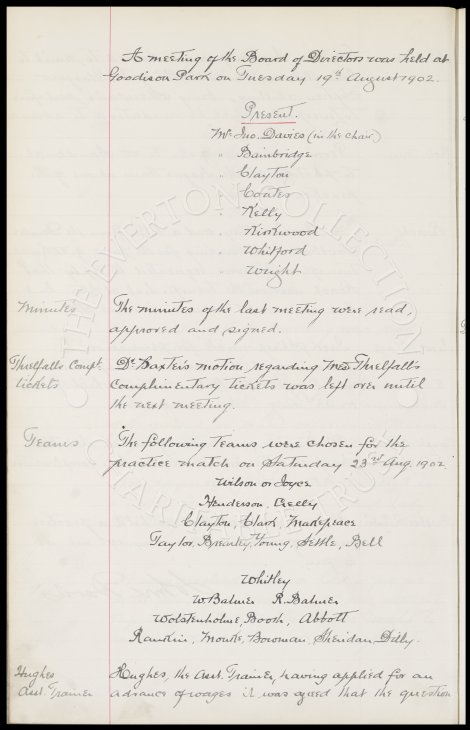 A meeting of the Board of Directors was held at
Goodison Park on Tuesday 19th August 1902.
Present.
Mr Jno. Davies (in the chair)
" Bainbridge
" Clayton
" Coates
" Kelly
" Kirkwood
" Whitford
" Wright
Minutes
The minutes of the last meeting were read,
approved and signed.
Threlfalls Compt.
tickets
Dr Baxter's motion regarding Threlfall's
Complimentary tickets was left over until
the next meeting.
Teams
The following Teams were chosen for the
practice match on Saturday 23rd Aug. 1902
Wilson or Joyce
Henderson, Crelly
Clayton, Clark, Makepeace
Taylor, Brearley, Young, Settle, Bell
Whitley
W. Balmer R. Balmer
Wolstenholme, Booth, Abbott
Rankin, Bowman, Sheridan, Dilly.
Hughes
Asst. Trainer
Hughes, the Asst. Trainer, having applied for an
advance of wages it was agreed that the question
THE EVERTON COLLECTION
CHARITABLE TRUST